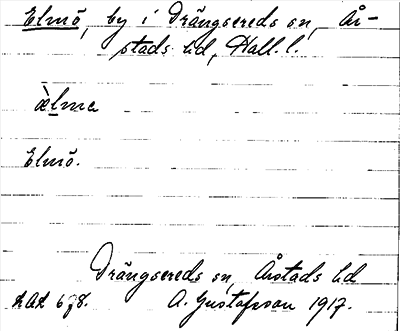 Elmö, by i Drängsereds sn, År-
stads hd, Hall. l.
æ̀lma
Elmö.
Drängsereds sn, Årstads hd
KAK 678. A. Gustafsson 1917.